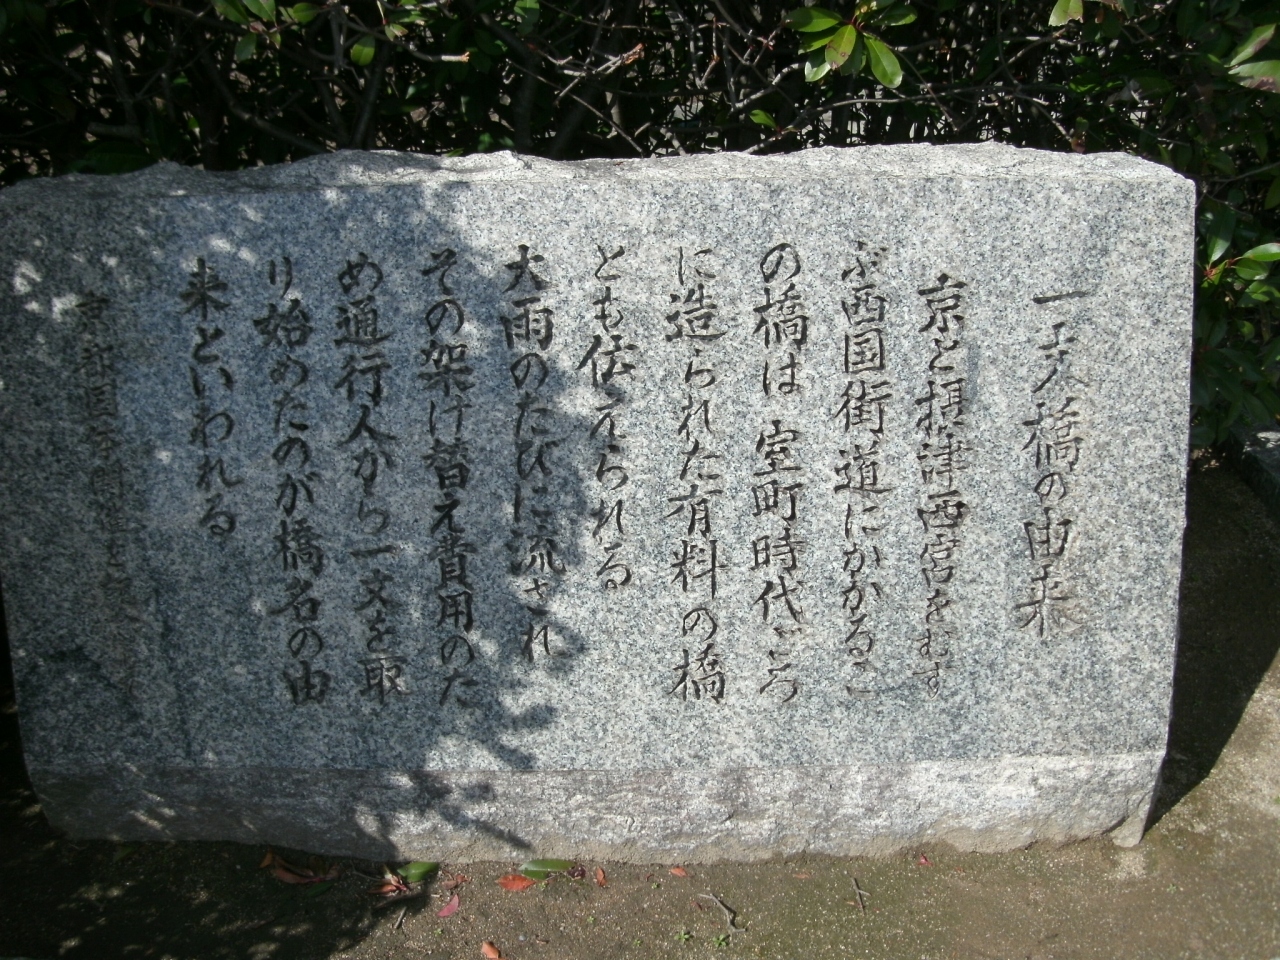 一文橋の由来
京と摂津西宮をむす
ぶ西国街道にかかるこ
の橋は 室町時代ごろ
に造られた有料の橋
とも伝えられる
大雨のたびに流され
その架け替え費用のた
め通行人から一文を取
り始めたのが橋名の由
来といわれる
京都